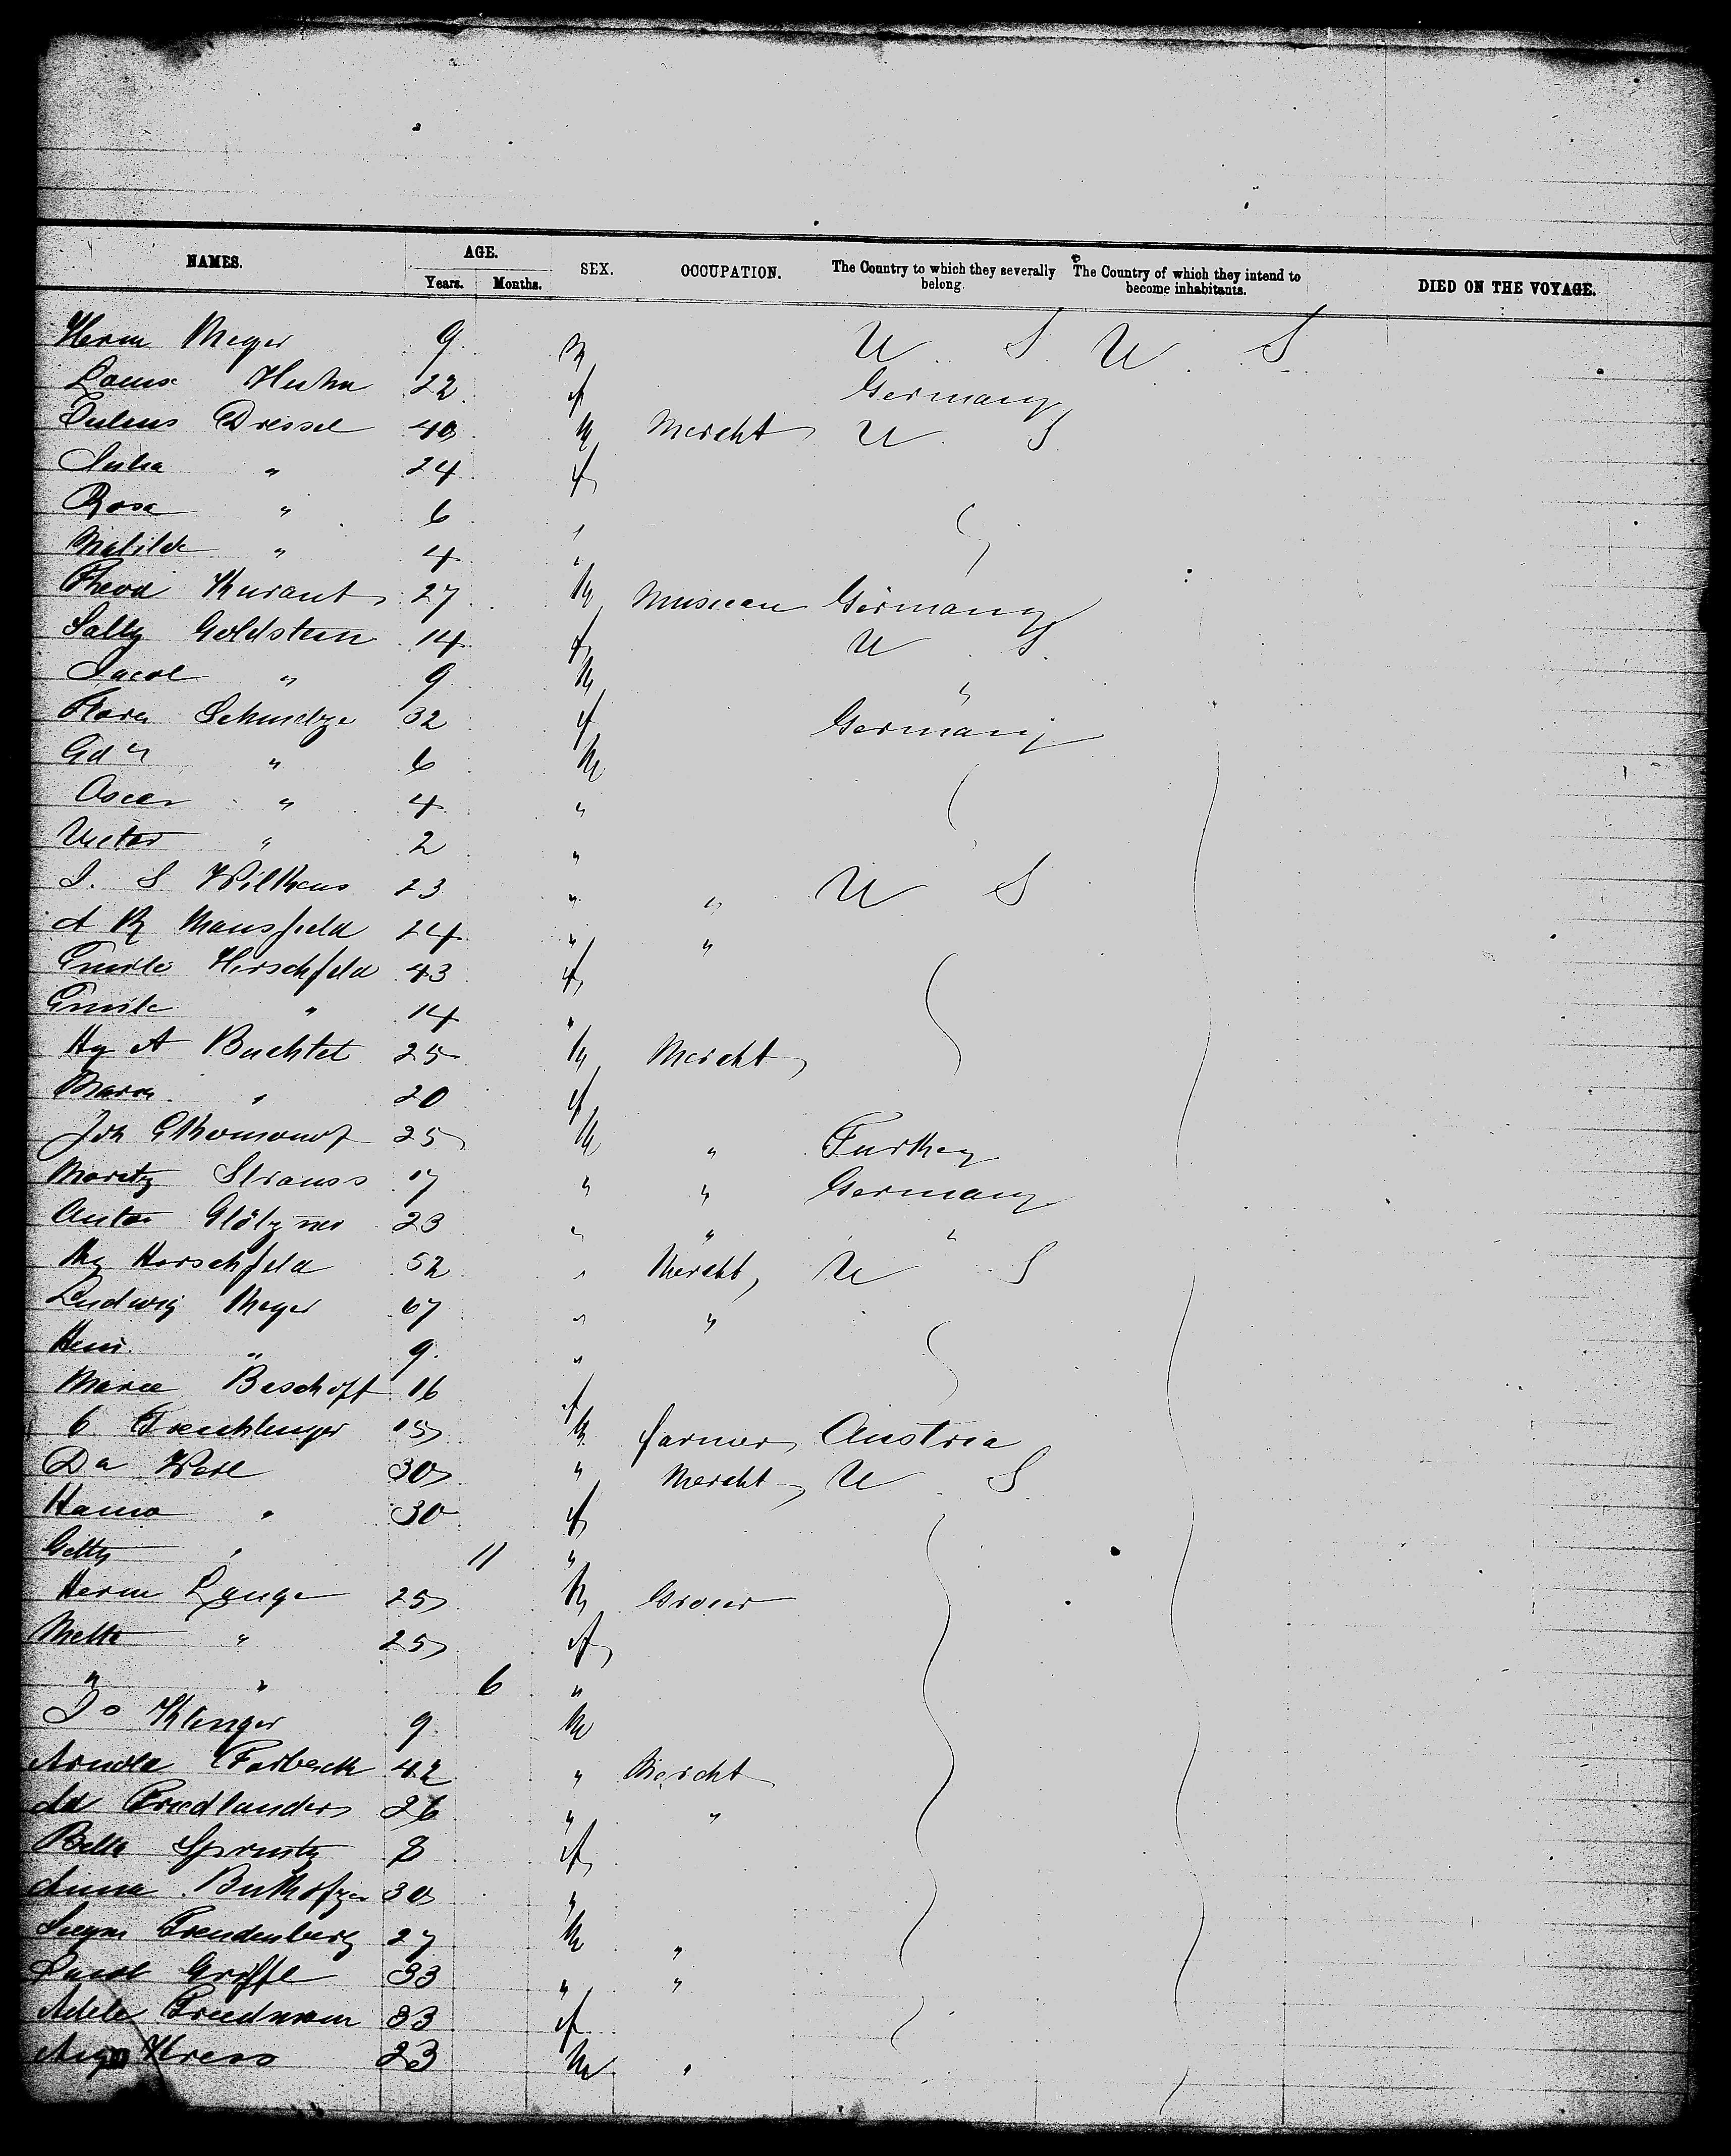 NAMES. AGE. SEX. OCCUPATION. The Country to which they severally belong. The Country of which they intend to become inhabitants. DIED ON THE VOYAGE.
Years. Months.
Herm Meyer 9 M U S U S
Louise Huhn 22 f Germany
Julius Dressel 40 M Mercht U S
Julia " 24 f
Rosa " 6 "
Matilde " 4 "
Theod Kurant 27 M Musician Germany
Sally Goldstein 14 f U S
Jacob " 9 M "
Flora Schmelze 32 f Germany
Edu " 6 M
Oscar " 4 "
Victor " 2 "
J. S Wilkens 23 " " U S
A R Mansfield 24 " "
Emilie Hirschfeld 43 f
Emilie " 14 "
Hy A Buchtel 25 M Mercht
Maria " 20 f
Joh 25 M " Turkey
Moritz Strauss 17 " " Germany
Anton Glötzner 23 " " "
Hy Hirschfeld 52 " Mercht U S
Ludwig Meyer 67 " "
Henr. " 9 "
Marie Bischoff 16 f
C Treuchlinger 15 M farmer Austria
Da Weil 30 " Mercht U S
Hanna " 30 f
Getty " 11 "
Herm Lange 25 M Grocer
Metta " 25 f
" " 6 "
Jo Klinger 9 M
Arnold Forbach 42 " Mercht
Ad Friedlander 26 " "
Bella 8 f
Anna 30 "
Freudenberg 27 M "
Jacob Griffel 33 " "
Adele Friedman 33 f
Aug Kress 23 M "